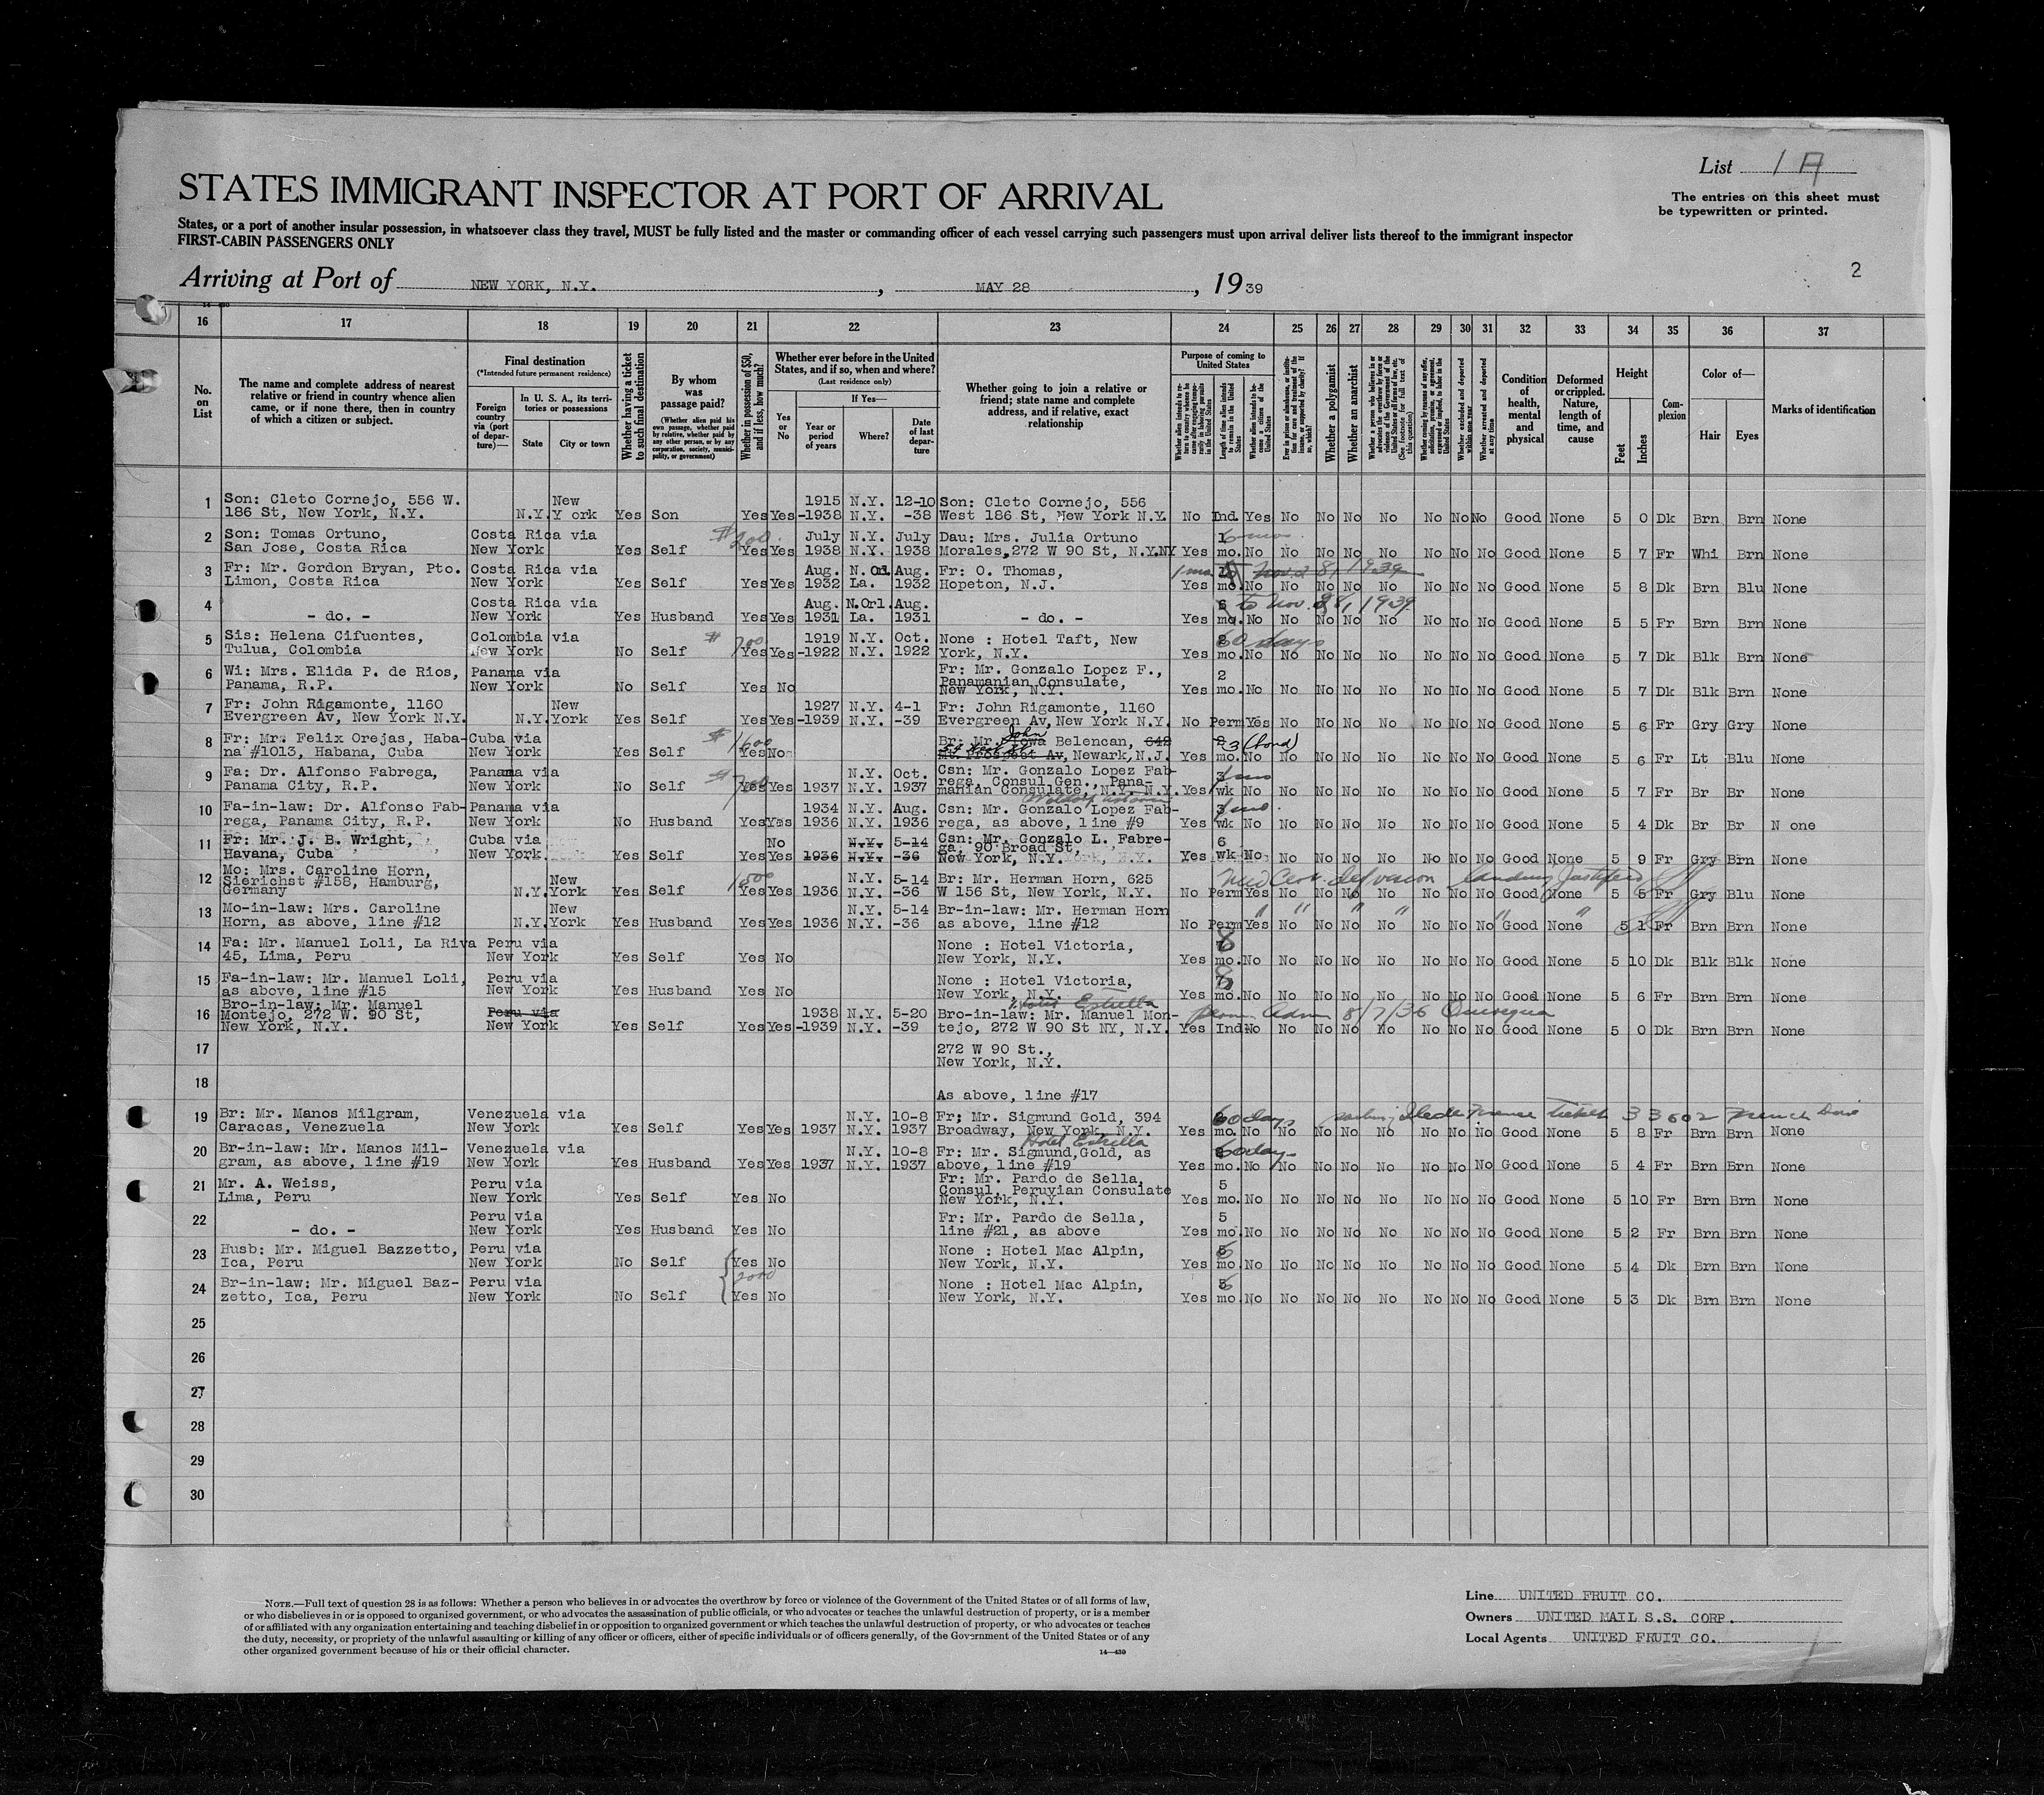 List 1 A
STATES IMMIGRANT INSPECTOR AT PORT OF ARRIVAL
The entries on this sheet must
be typewritten or printed.
States, or a port of another insular possession, in whatsoever class they travel, MUST be fully listed and the master or commanding officer of each vessel carrying such passengers must upon arrival deliver lists thereof to the immigrant inspector
FIRST-CABIN PASSENGERS ONLY
2
Arriving at Port of NEW YORK, N.Y., MAY 28, 1939
16 17 18 19 20 21 22 23 24 25 26 27 28 29 30 31 32 33 34 35 36 37
No. on List
The name and complete address of nearest relative or friend in country whence alien came, or if none there, then in country of which a citizen or subject.
Final destination
(*Intended future permanent residence)
Foreign country via (port of departure)—
In U. S. A., its territories or possessions
State
City or town
Whether having a ticket to such final destination
By whom was passage paid?
(Whether alien paid his own passage, whether paid by relative, whether paid by any other person, or by any corporation, society, municipality, or government)
Whether in possession of $50, and if less, how much?
Whether ever before in the United States, and if so, when and where?
(Last residence only)
If Yes—
Yes or No
Year or period of years
Where?
Date of last departure
Whether going to join a relative or friend; state name and complete address, and if relative, exact relationship
Purpose of coming to United States
Whether a polygamist
Whether an anarchist
Condition of health, mental and physical
Deformed or crippled. Nature, length of time, and cause
Height
Feet
Inches
Complexion
Color of—
Hair
Eyes
Marks of identification
1 Son: Cleto Cornejo, 556 W. New 1915 N.Y. 12-10 Son: Cleto Cornejo, 556
186 St, New York, N.Y. N.Y. Y ork Yes Son Yes Yes -1938 N.Y. -38 West 186 St, New York N.Y. No Ind. Yes No No No No No No No Good None 5 0 Dk Brn Brn None
2 Son: Tomas Ortuno, Costa Rica via $200 July N.Y. July Dau: Mrs. Julia Ortuno 6 mos
San Jose, Costa Rica New York Yes Self Yes Yes 1938 N.Y. 1938 Morales, 272 W 90 St, N.Y.NY Yes mo. No No No No No No No No Good None 5 7 Fr Whi Brn None
3 Fr: Mr. Gordon Bryan, Pto. Costa Rica via Aug. N. Orl Aug. Fr: O. Thomas, 1 mo. Nov. 28, 1939
Limon, Costa Rica New York Yes Self Yes Yes 1932 La. 1932 Hopeton, N.J. Yes mo. No No No No No No No No Good None 5 8 Dk Brn Blu None
4 Costa Rica via Aug. N.Orl. Aug. 6 to Nov. 28, 1939
- do. - New York Yes Husband Yes Yes 1931 La. 1931 - do. - Yes mo. No No No No No No No No Good None 5 5 Fr Brn Brn None
5 Sis: Helena Cifuentes, Colombia via $ 700 1919 N.Y. Oct. None : Hotel Taft, New 60 days
Tulua, Colombia New York No Self Yes Yes -1922 N.Y. 1922 York, N.Y. Yes mo. No No No No No No No No Good None 5 7 Dk Blk Brn None
6 Wi: Mrs. Elida P. de Rios, Panama via Fr: Mr. Gonzalo Lopez F., 2
Panama, R.P. New York No Self Yes No Panamanian Consulate,
New York, N.Y. Yes mo. No No No No No No No No Good None 5 7 Dk Blk Brn None
7 Fr: John Rigamonte, 1160 New 1927 N.Y. 4-1 Fr: John Rigamonte, 1160
Evergreen Av, New York N.Y. N.Y. York Yes Self Yes Yes -1939 N.Y. -39 Evergreen Av, New York N.Y. No Perm Yes No No No No No No No Good None 5 6 Fr Gry Gry None
8 Fr: Mr. Felix Orejas, Haba- Cuba via $ 1600 Br: Mr. John Belencan, 642 3 (bond)
na #1013, Habana, Cuba New York Yes Self Yes No Mt. Prospect Av, Newark, N.J. Yes mo. No No No No No No No No Good None 5 6 Fr Lt Blu None
9 Fa: Dr. Alfonso Fabrega, Panama via $700 N.Y. Oct. Csn: Mr. Gonzalo Lopez Fab- 1 mo
Panama City, R.P. New York No Self Yes Yes 1937 N.Y. 1937 rega, Consul Gen., Pana-
manian Consulate, N.Y. N.Y. Yes wk No No No No No No No No Good None 5 7 Fr Br Br None
10 Fa-in-law: Dr. Alfonso Fab- Panama via 1934 N.Y. Aug. Csn: Mr. Gonzalo Lopez Fab- 1 mo.
rega, Panama City, R.P. New York No Husband Yes Yes 1936 N.Y. 1936 rega, as above, line #9 Yes wk No No No No No No No No Good None 5 4 Dk Br Br N one
11 Fr: Mr. J. B. Wright, Cuba via No N.Y. 5-14 Csn: Mr. Gonzalo L. Fabre- 6
Havana, Cuba New York Yes Self Yes Yes 1936 N.Y. -36 ga, 90 Broad St,
New York, N.Y. Yes wk No No No No No No No No Good None 5 9 Fr Gry Brn None
12 Mo: Mrs. Caroline Horn, New 1500 N.Y. 5-14 Br: Mr. Herman Horn, 625
Sierichst #158, Hamburg,
Germany N.Y. York Yes Self Yes Yes 1936 N.Y. -36 W 156 St, New York, N.Y. No Perm Yes No No No No No No No Good None 5 5 Fr Gry Blu None
13 Mo-in-law: Mrs. Caroline New N.Y. 5-14 Br-in-law: Mr. Herman Horn " " " " " "
Horn, as above, line #12 N.Y. York Yes Husband Yes Yes 1936 N.Y. -36 as above, line #12 No Perm Yes No No No No No No No Good None 5 1 Fr Brn Brn None
14 Fa: Mr. Manuel Loli, La Riva Peru via None : Hotel Victoria, 8
45, Lima, Peru New York Yes Self Yes No New York, N.Y. Yes mo. No No No No No No No No Good None 5 10 Dk Blk Blk None
15 Fa-in-law: Mr. Manuel Loli, Peru via None : Hotel Victoria, 8
as above, line #15 New York Yes Husband Yes No New York, N.Y. Yes mo. No No No No No No No No Good None 5 6 Fr Brn Brn None
Hotel Estrella
16 Bro-in-law; Mr. Manuel Peru via 1938 N.Y. 5-20 Bro-in-law: Mr. Manuel Mon- Perm Adm 8/7/36
Montejo, 272 W. 90 St,
New York, N.Y. New York Yes Self Yes Yes -1939 N.Y. -39 tejo, 272 W 90 St NY, N.Y. Yes Ind No No No No No No No No Good None 5 0 Dk Brn Brn None
17 272 W 90 St.,
New York, N.Y.
18 As above, line #17
19 Br: Mr. Manos Milgram, Venezuela via N.Y. 10-8 Fr; Mr. Sigmund Gold, 394 60 days Ticket 33602 French Line
Caracas, Venezuela New York Yes Self Yes Yes 1937 N.Y. 1937 Broadway, New York, N.Y. Yes mo. No No No No No No No No Good None 5 8 Fr Brn Brn None
Hotel Estrella
20 Br-in-law: Mr. Manos Mil- Venezuela via N.Y. 10-8 Fr: Mr. Sigmund, Gold, as 60 days
gram, as above, line #19 New York Yes Husband Yes Yes 1937 N.Y. 1937 above, line #19 Yes mo. No No No No No No No No Good None 5 4 Fr Brn Brn None
21 Mr. A. Weiss, Peru via Fr: Mr. Pardo de Sella, 5
Lima, Peru New York Yes Self Yes No Consul, Peruvian Consulate
New York, N.Y. Yes mo. No No No No No No No No Good None 5 10 Fr Brn Brn None
22 Peru via Fr: Mr. Pardo de Sella, 5
- do. - New York Yes Husband Yes No line #21, as above Yes mo. No No No No No No No No Good None 5 2 Fr Brn Brn None
23 Husb: Mr. Miguel Bazzetto, Peru via None : Hotel Mac Alpin, 6
Ica, Peru New York No Self Yes No New York, N.Y. Yes mo. No No No No No No No No Good None 5 4 Dk Brn Brn None
2000
24 Br-in-law: Mr. Miguel Baz- Peru via None : Hotel Mac Alpin, 6
zetto, Ica, Peru New York No Self Yes No New York, N.Y. Yes mo. No No No No No No No No Good None 5 3 Dk Brn Brn None
25
26
27
28
29
30
NOTE.—Full text of question 28 is as follows: Whether a person who believes in or advocates the overthrow by force or violence of the Government of the United States or of all forms of law,
or who disbelieves in or is opposed to organized government, or who advocates the assassination of public officials, or who advocates or teaches the unlawful destruction of property, or is a member
of or affiliated with any organization entertaining and teaching disbelief in or opposition to organized government or which teaches the unlawful destruction of property, or who advocates or teaches
the duty, necessity, or propriety of the unlawful assaulting or killing of any officer or officers, either of specific individuals or of officers generally, of the Government of the United States or of any
other organized government because of his or their official character.
14—430
Line UNITED FRUIT CO.
Owners UNITED MAIL S.S. CORP.
Local Agents UNITED FRUIT CO.